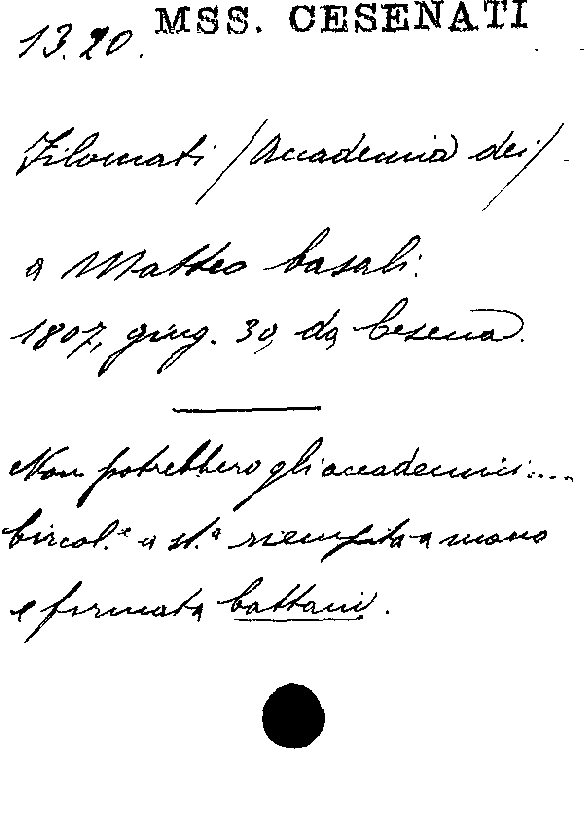 MSS. CESENATI
13.20.
Filomati /Accademia dei/
a Matteo Casali.
1807, giug. 30, da Cesena.
Non potrebbero gli accademici....
Circol.e a st.a riempita a mano
e firmata Cattani.